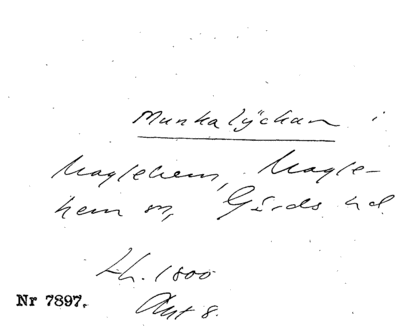 Munkalyckan i
Maglehem, Magle-
hem sn, Gärds hd
Lh. 1800
Akt 8.
Nr 7897.